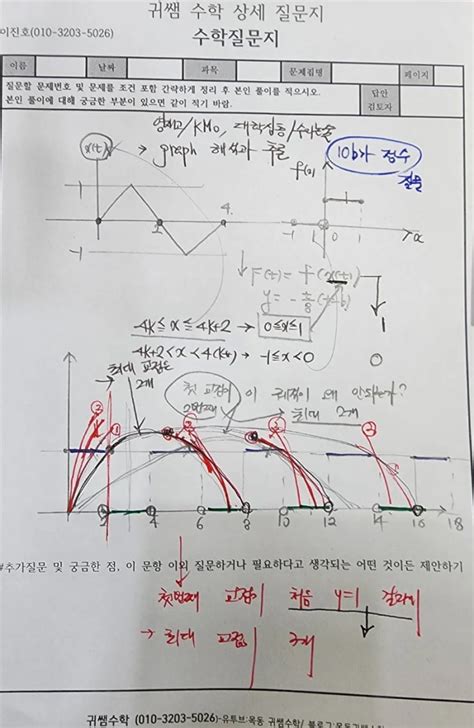 귀쌤 수학 상세 질문지
이진호(010-3203-5026)
수학질문지
이름 날짜 과목 문제집명 페이지
질문할 문제번호 및 문제를 조건 포함 간략하게 정리 후 본인 풀이를 적으시오.
본인 풀이에 대해 궁금한 부분이 있으면 같이 적기 바람.
답안
검토자
영재고/KMO, 대학심층/수리논술
x(t) → graph 해석과 추론
10b가 정수
질문
f(x)
1
1
2 4
-1 0 1 x
-1
F(t) = f(x(t))
1
4k ≤ x ≤ 4k+2 → 0≤x≤1
0
4k+2 < x < 4(k+1) → -1≤x<0
최대 교점은
2개
첫 교점이
2번째
이 궤적이 왜 안되는가?
최대 2개
2 4 6 8 10 12 14 16 18
#추가질문 및 궁금한 점, 이 문항 이외 질문하거나 필요하다고 생각되는 어떤 것이든 제안하기
첫번째 교점이 처음 y=1
→ 최대 교점
귀쌤수학 (010-3203-5026)-유투브:목동 귀쌤수학/